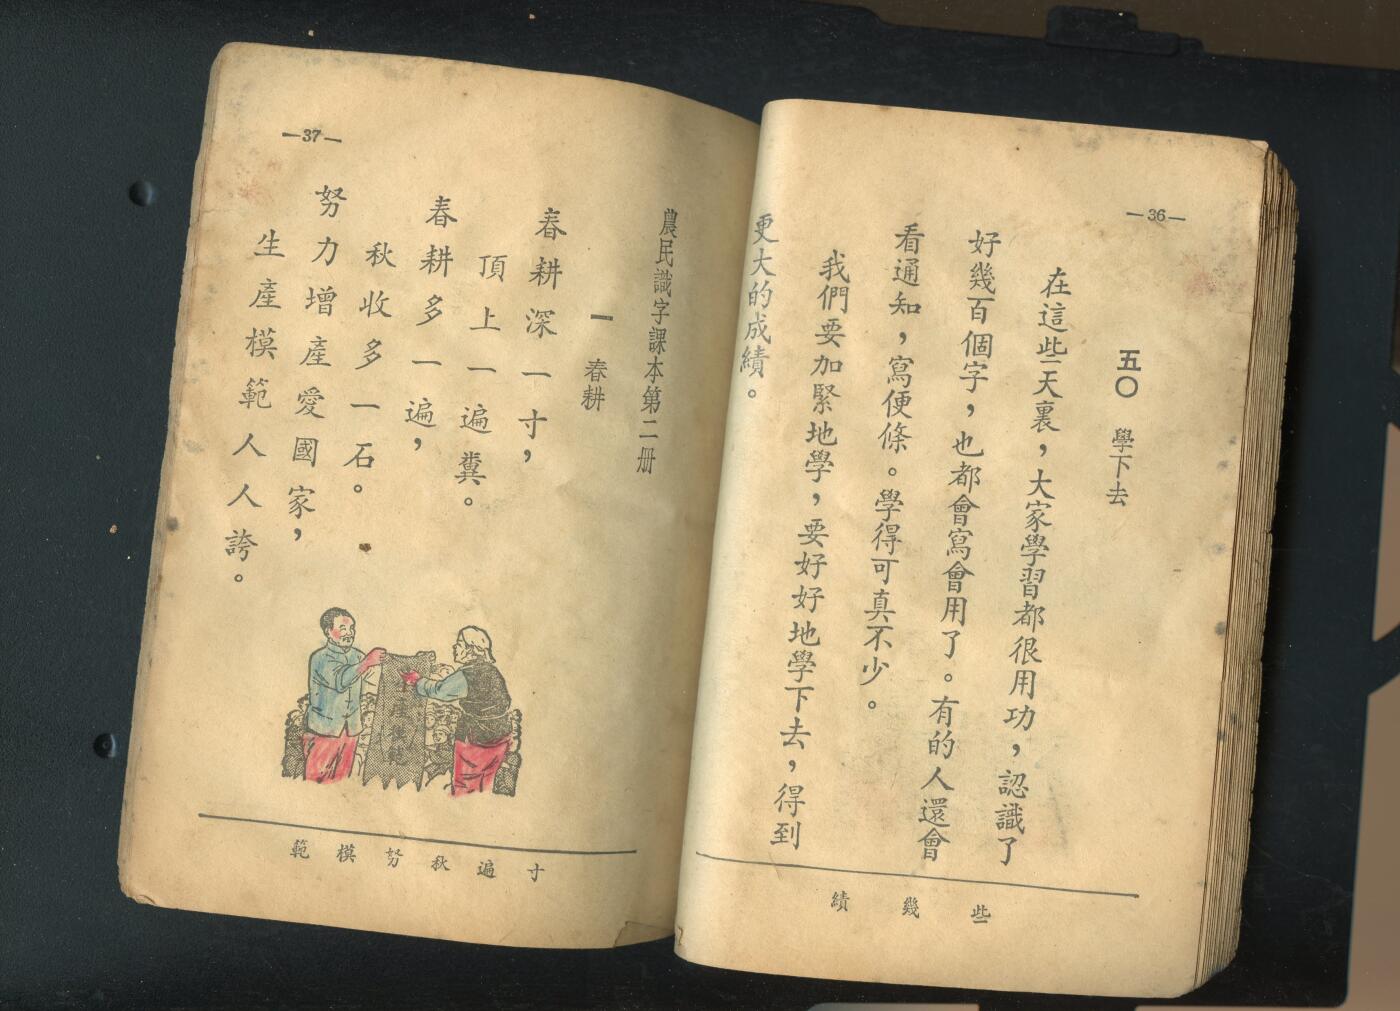 —36—
五〇　學下去
在這些天裏，大家學習都很用功，認識了
好幾百個字，也都會寫會用了。有的人還會
看通知，寫便條。學得可真不少。
我們要加緊地學，要好好地學下去，得到
更大的成績。
些　幾　績
—37—
農民識字課本第二册
一　春耕
春耕深一寸，
頂上一遍糞。
春耕多一遍，
秋收多一石。
努力增產愛國家，
生產模範人人誇。
生產模範
寸　遍　秋　努　模　範